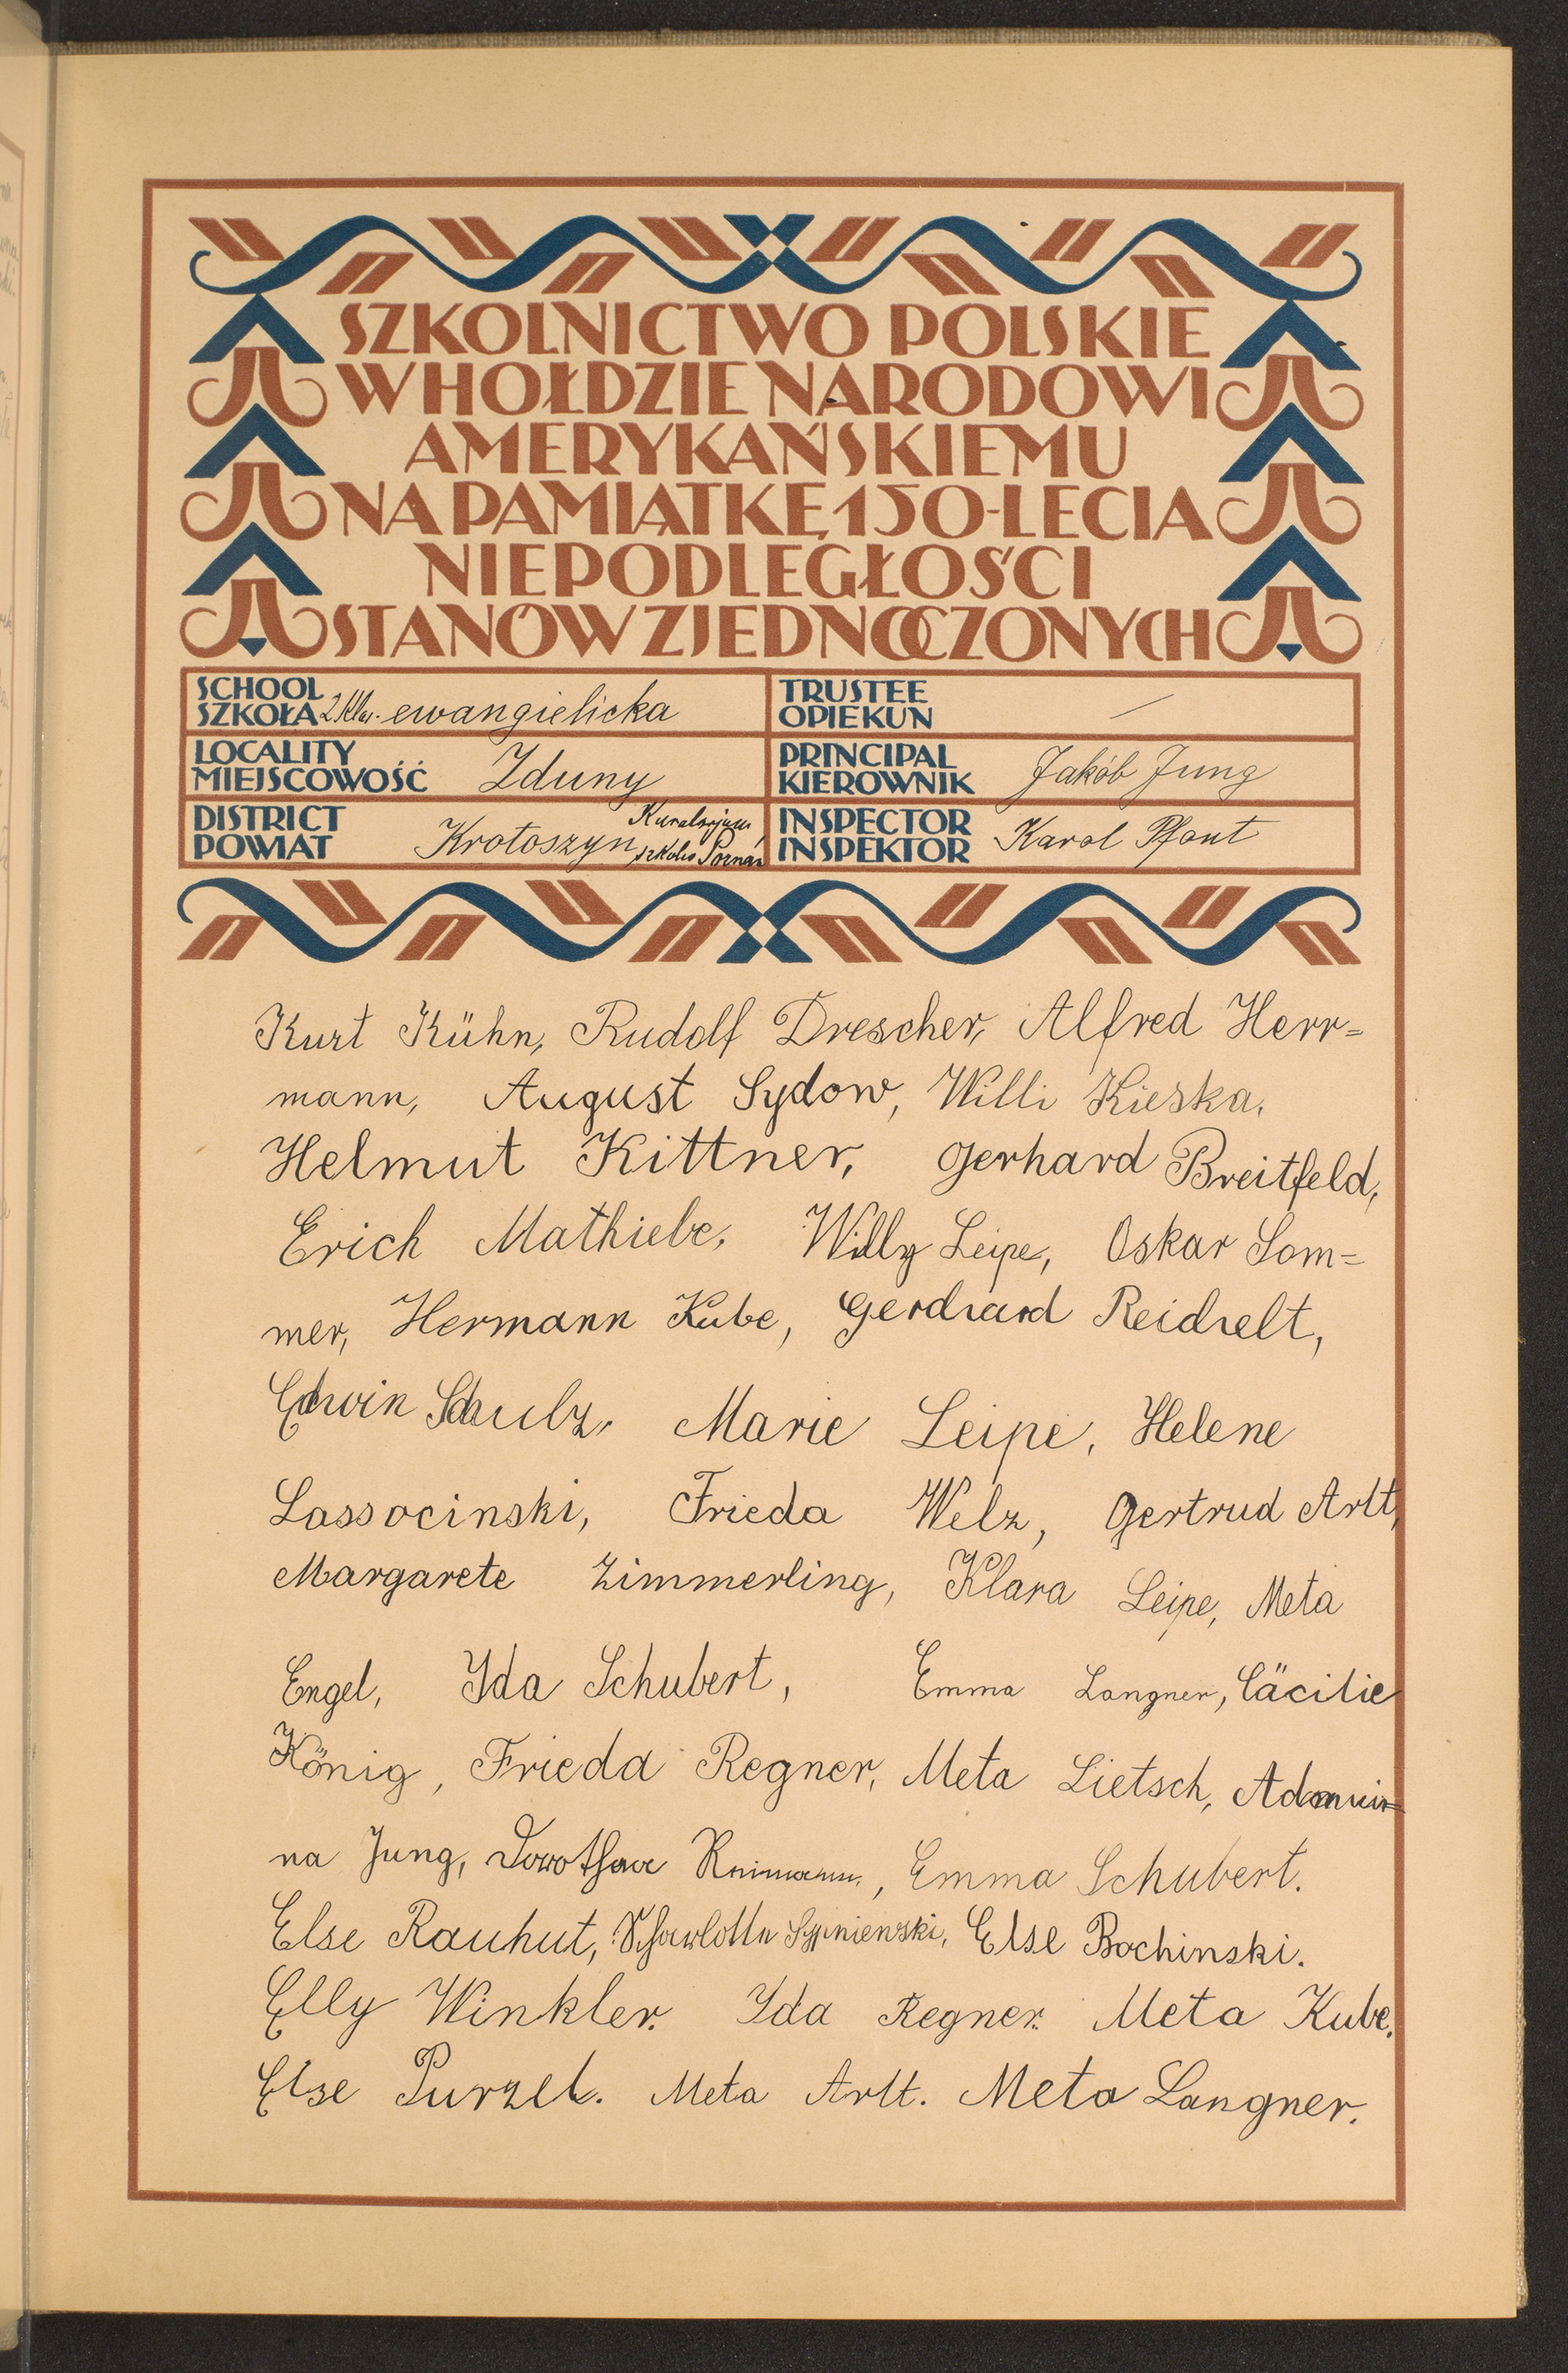 SZKOLNICTWO POLSKIE
W HOŁDZIE NARODOWI
AMERYKAŃSKIEMU
NA PAMIĄTKĘ 150-LECIA
NIEPODLEGŁOŚCI
STANÓW ZJEDNOCZONYCH
SCHOOL
SZKOŁA 2 Klas. ewangielicka
TRUSTEE
OPIEKUN —
LOCALITY
MIEJSCOWOŚĆ Zduny
PRINCIPAL
KIEROWNIK Jakób Jung
DISTRICT
POWIAT Krotoszyn, Kuratorjum szkolne Poznań
INSPECTOR
INSPEKTOR Karol Pfant
Kurt Kühn, Rudolf Drescher, Alfred Herr=
mann, August Sydow, Willi Kieska.
Helmut Kittner, Gerhard Breitfeld,
Erich Mathiebe, Willy Leipe, Oskar Som=
mer, Hermann Kube, Gerdhard Reichelt,
Edwin Schulz, Marie Leipe, Helene
Lassocinski, Frieda Welz, Gertrud Arlt,
Margarete Zimmerling, Klara Leipe, Meta
Engel, Ida Schubert, Emma Langner, Cäcilie
König, Frieda Regner, Meta Lietsch,
na Jung, Dorothea Reimann, Emma Schubert.
Else Rauhut, Scharlotte Sypniewski, Else Bochinski.
Elly Winkler. Ida Regner. Meta Kube.
Else Purzel. Meta Arlt. Meta Langner.